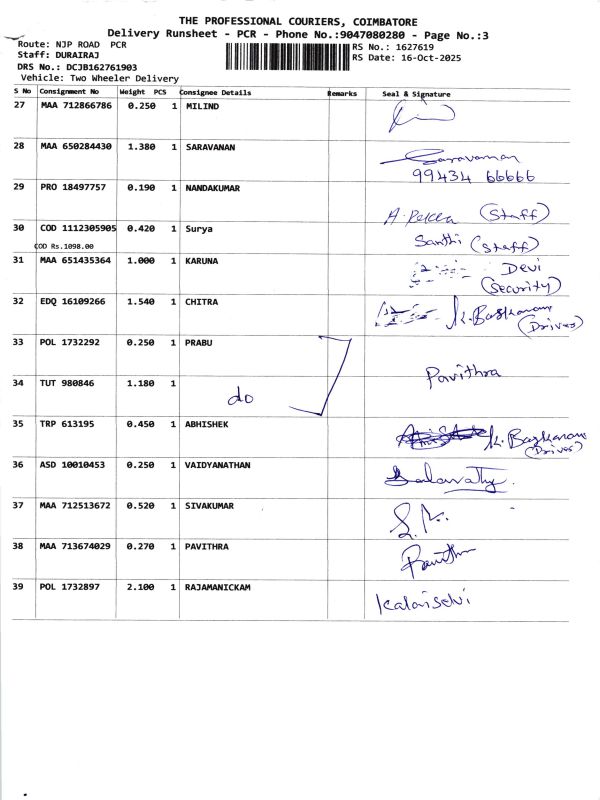 THE PROFESSIONAL COURIERS, COIMBATORE
Delivery Runsheet - PCR - Phone No.:9047080280 - Page No.:3
Route: NJP ROAD PCR
Staff: DURAIRAJ
DRS No.: DCJB162761903
Vehicle: Two Wheeler Delivery
RS No.: 1627619
RS Date: 16-Oct-2025
S No Consignment No Weight PCS Consignee Details Remarks Seal & Signature
27 MAA 712866786 0.250 1 MILIND
28 MAA 650284430 1.380 1 SARAVANAN Saravanan
99434 66666
29 PRO 18497757 0.190 1 NANDAKUMAR
A. Rekha (Staff)
30 COD 1112305905 0.420 1 Surya
COD Rs.1098.00 Santhi (Staff)
31 MAA 651435364 1.000 1 KARUNA Devi
(Security)
32 EDQ 16109266 1.540 1 CHITRA K. Baskaran
(Driver)
33 POL 1732292 0.250 1 PRABU
Pavithra
34 TUT 980846 1.180 1 do
35 TRP 613195 0.450 1 ABHISHEK K. Baskaran
(Driver)
36 ASD 10010453 0.250 1 VAIDYANATHAN
37 MAA 712513672 0.520 1 SIVAKUMAR
38 MAA 713674029 0.270 1 PAVITHRA Pavithra
39 POL 1732897 2.100 1 RAJAMANICKAM Kalaiselvi